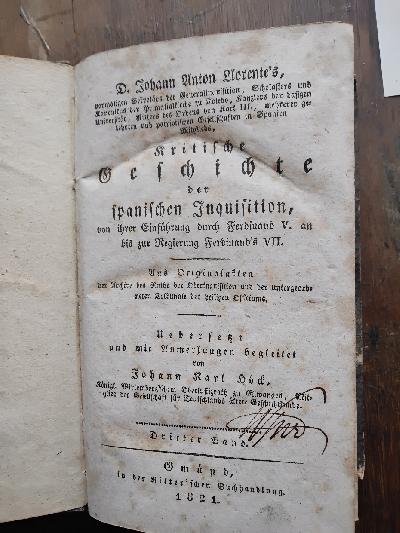 D. Johann Anton Llorente's,
vormaligen Sekretärs der Generalinquisition, Scholasters und
Kanonikus der Primatialkirche zu Toledo, Kanzlers der dasigen
Universität, Ritters des Ordens von Karl III., mehrerer ge-
lehrten und patriotischen Gesellschaften in Spanien
Mitglieds,
Kritische
Geschichte
der
spanischen Inquisition,
von ihrer Einführung durch Ferdinand V. an
bis zur Regierung Ferdinand's VII.
Aus Originalakten
der Archive des Raths der Oberinquisition und der untergeord-
neten Tribunale des heiligen Officiums.
Uebersetzt
und mit Anmerkungen begleitet
von
Johann Karl Höck,
Königl. Würtembergischem zu Ellwangen, Mit-
glied der Gesellschaft für Deutschlands ältere Geschichtskunde.
Dritter Band.
Gmünd,
in der Ritterschen Buchhandlung.
1821.